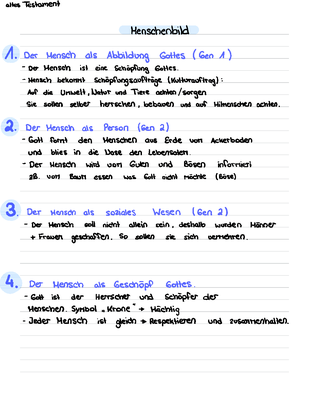 altes Testament
Menschenbild
1. Der Mensch als Abbildung Gottes (Gen 1)
- Der Mensch ist eine Schöpfung Gottes.
- Mensch bekommt Schöpfungsaufträge (Kulturauftrag):
Auf die Umwelt, Natur und Tiere achten/sorgen
Sie sollen selber herrschen, bebauen und auf Mitmenschen achten.
2. Der Mensch als Person (Gen 2)
- Gott formt den Menschen aus Erde vom Ackerboden
und blies in die Nase den Lebensatem.
- Der Mensch wird vom Guten und Bösen informiert
zB. vom Baum essen was Gott nicht möchte (Böse)
3. Der Mensch als soziales Wesen (Gen 2)
- Der Mensch soll nicht allein sein, deshalb wurden Männer
+ Frauen geschaffen. So sollen sie sich vermehren.
4. Der Mensch als Geschöpf Gottes.
- Gott ist der Herrscher und Schöpfer der
Menschen. Symbol „Krone" → Mächtig
- Jeder Mensch ist gleich → Respektieren und zusammenhalten.